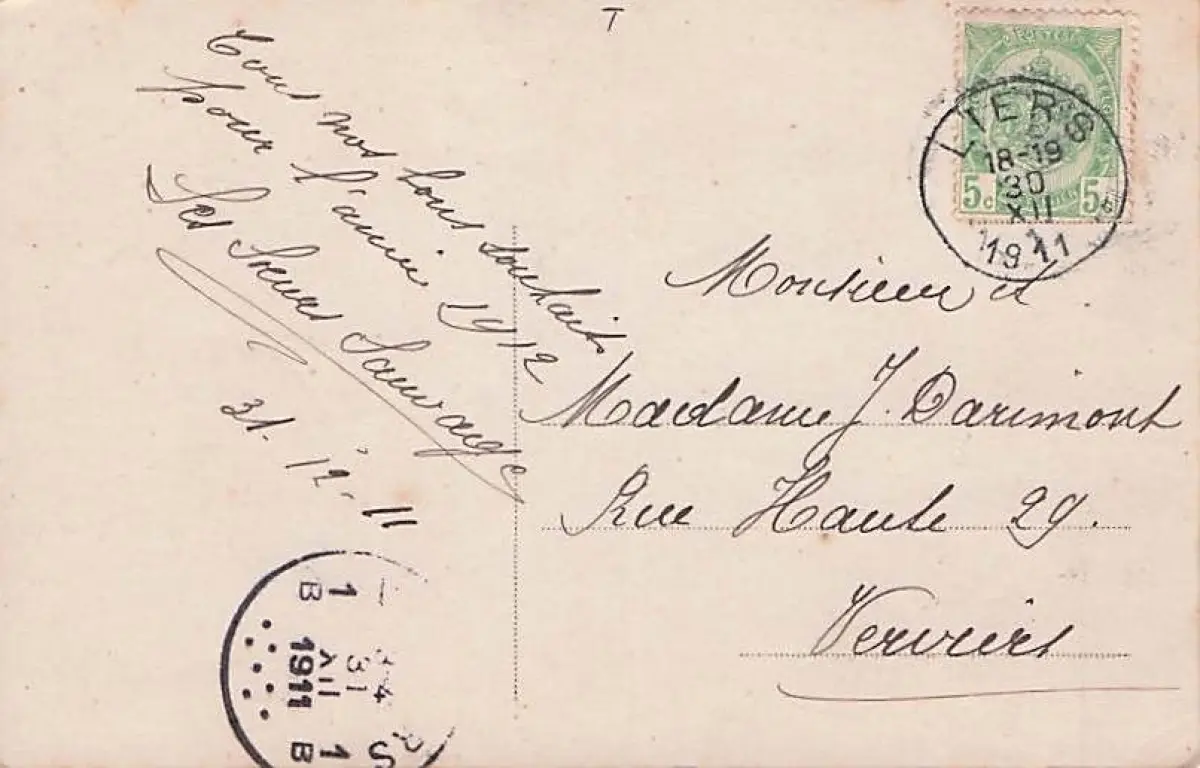 T
Tous nos bons souhaits
pour l'année 1912
Les Soeurs Sauvage
31-12-11
LIERS
18-19
30
XII
1911
5c 5c
Monsieur et
Madame J. Darimont
Rue Haute 29.
Verviers
1 B
31
XII
1911
1 B